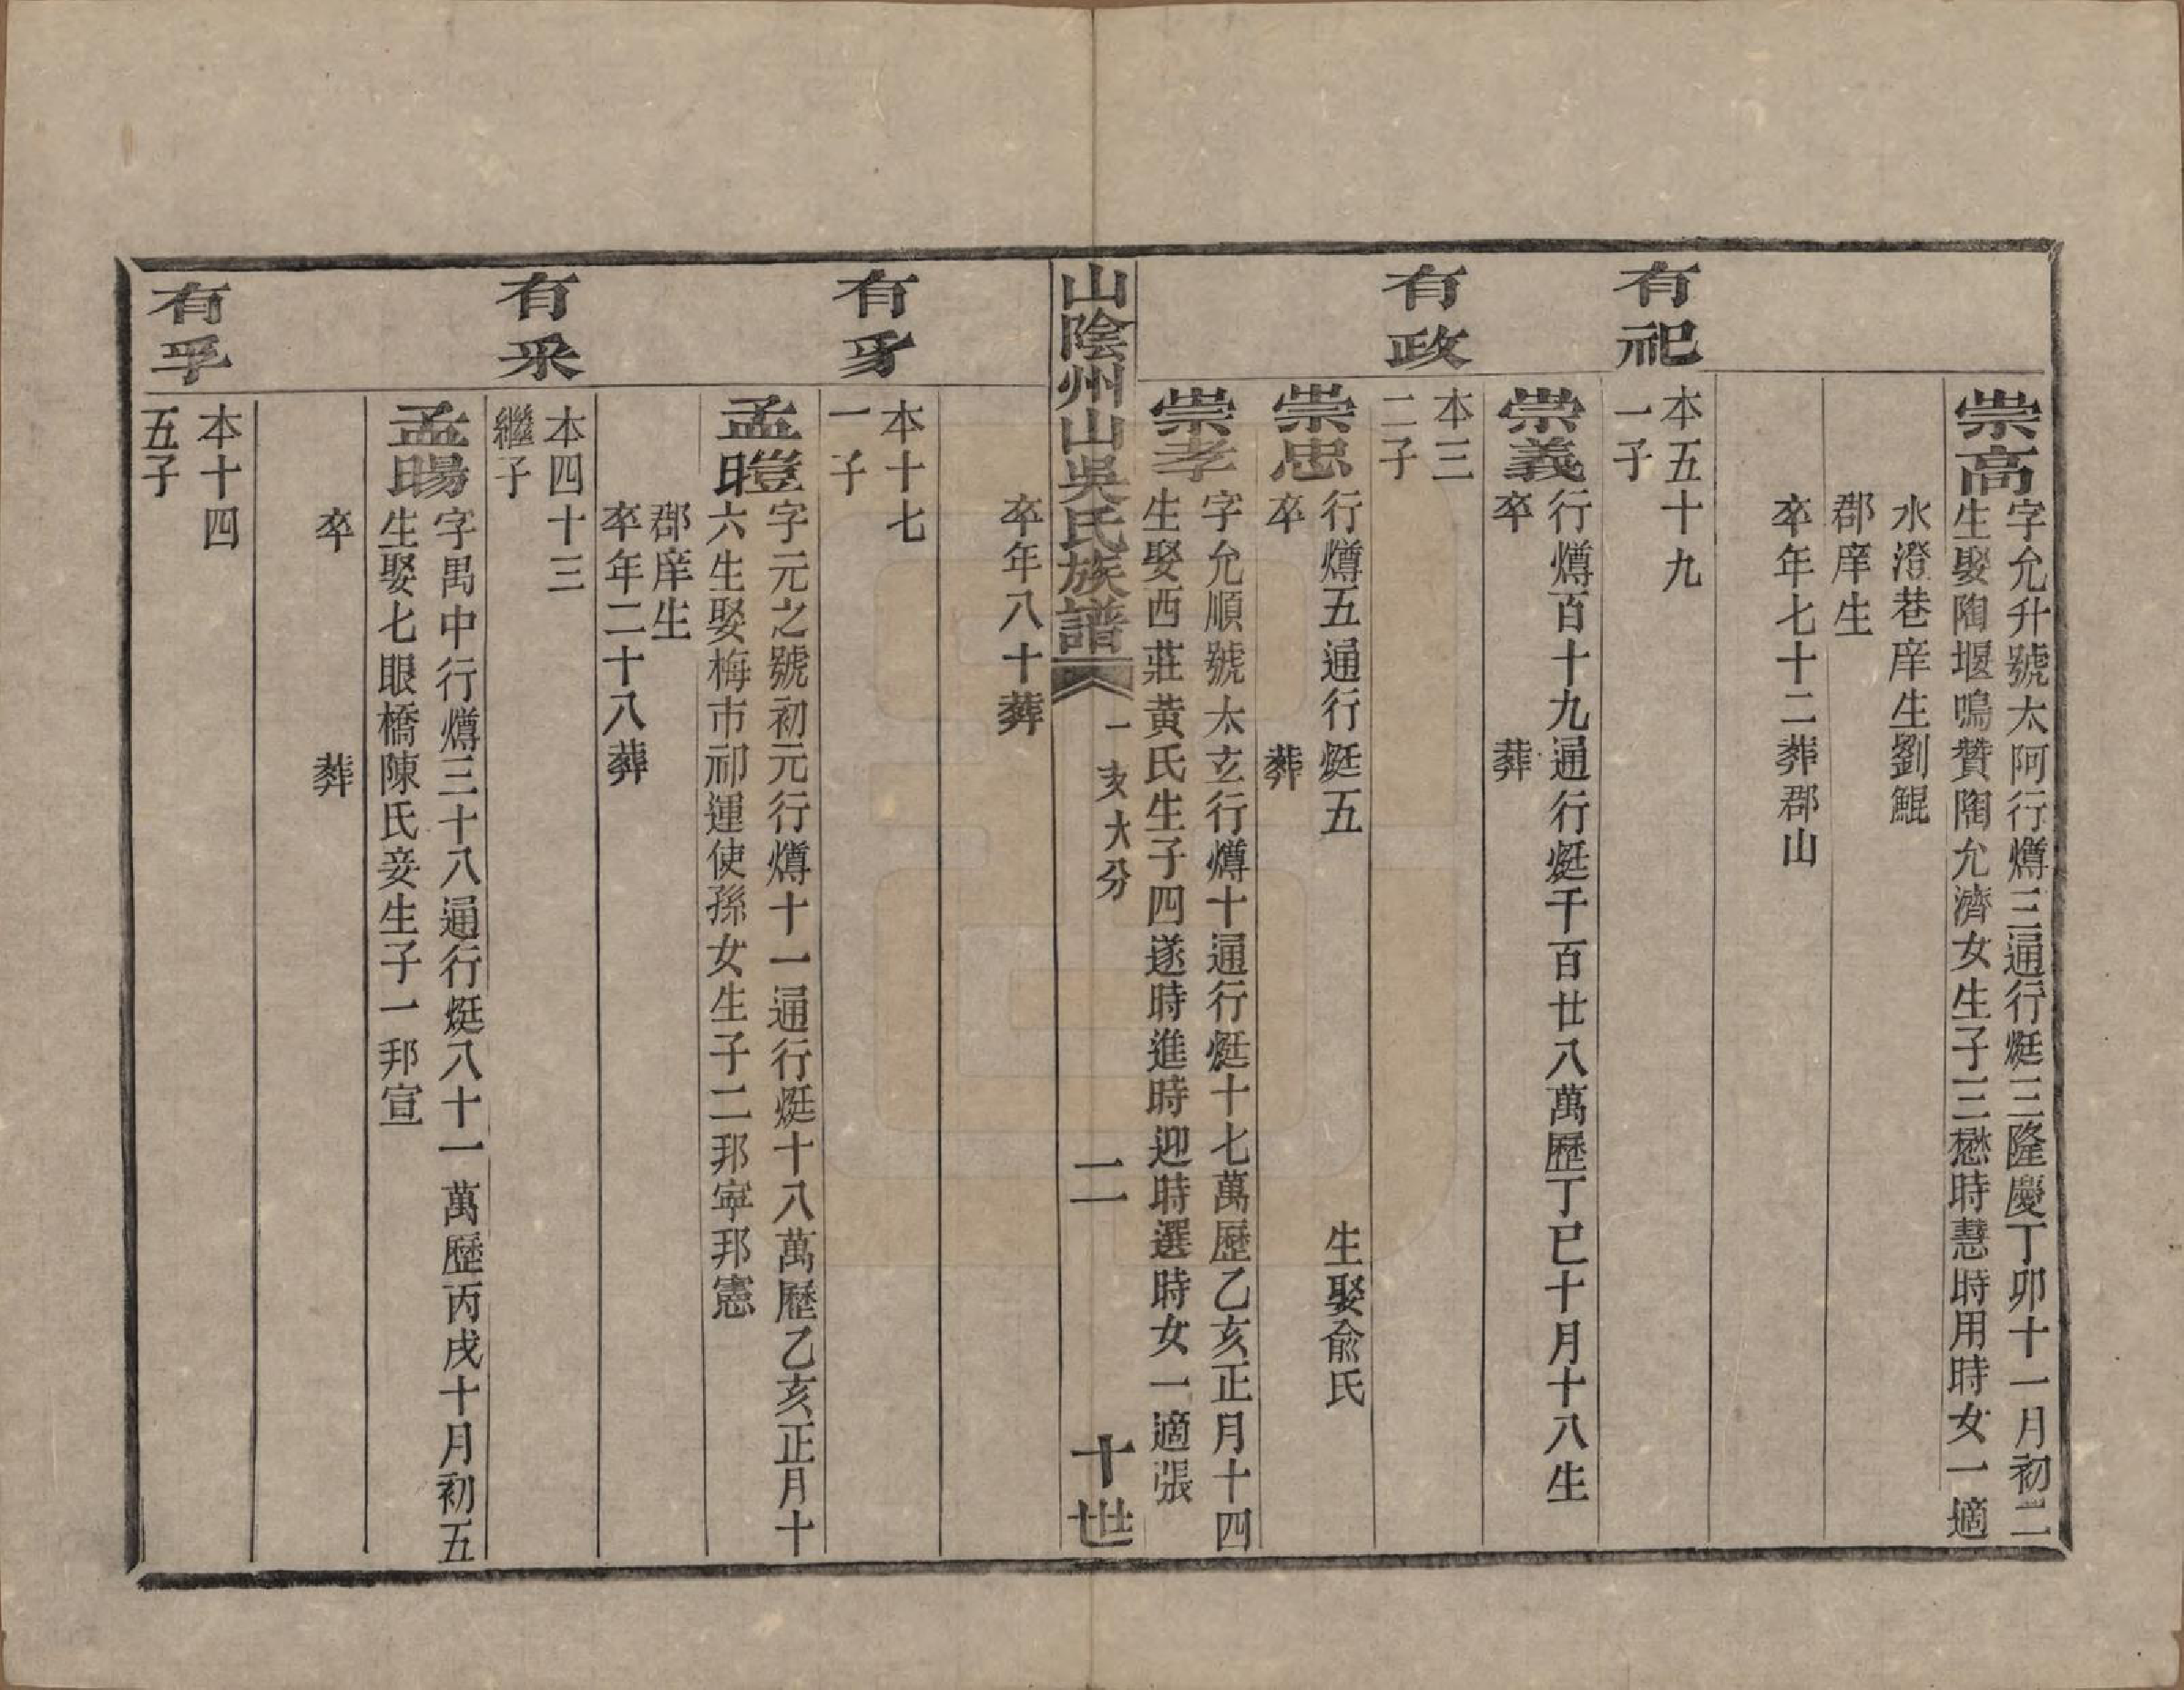 崇高
字允升號太阿行𤏸三通行烶三隆慶丁卯十一月初二
生娶陶堰鳴贊陶允濟女生子三懋時慧時用時女一適
水澄巷庠生劉鯤
郡庠生
卒年七十二葬郡山
有祀
本五十九
一子
崇義
行𤏸百十九通行烶千百廿八萬歷丁巳十月十八生
卒 葬
有政
本三
二子
崇忠
行𤏸五通行烶五 生娶俞氏
卒 葬
崇孝
字允順號太玄行𤏸十通行烶十七萬歷乙亥正月十四
生娶西莊黃氏生子四遂時進時迎時選時女一適張
山陰州山吳氏族譜
一 亥大分
二 十世
卒年八十葬
有豸
本十七
一子
孟暟
字元之號初元行𤏸十一通行烶十八萬歷乙亥正月十
六生娶梅市祁運使孫女生子二邦寧邦憲
郡庠生
卒年二十八葬
有采
本四十三
繼子
孟暘
字禺中行𤏸三十八通行烶八十一萬歷丙戌十月初五
生娶七眼橋陳氏妾生子一邦宣
卒 葬
有孚
本十四
五子